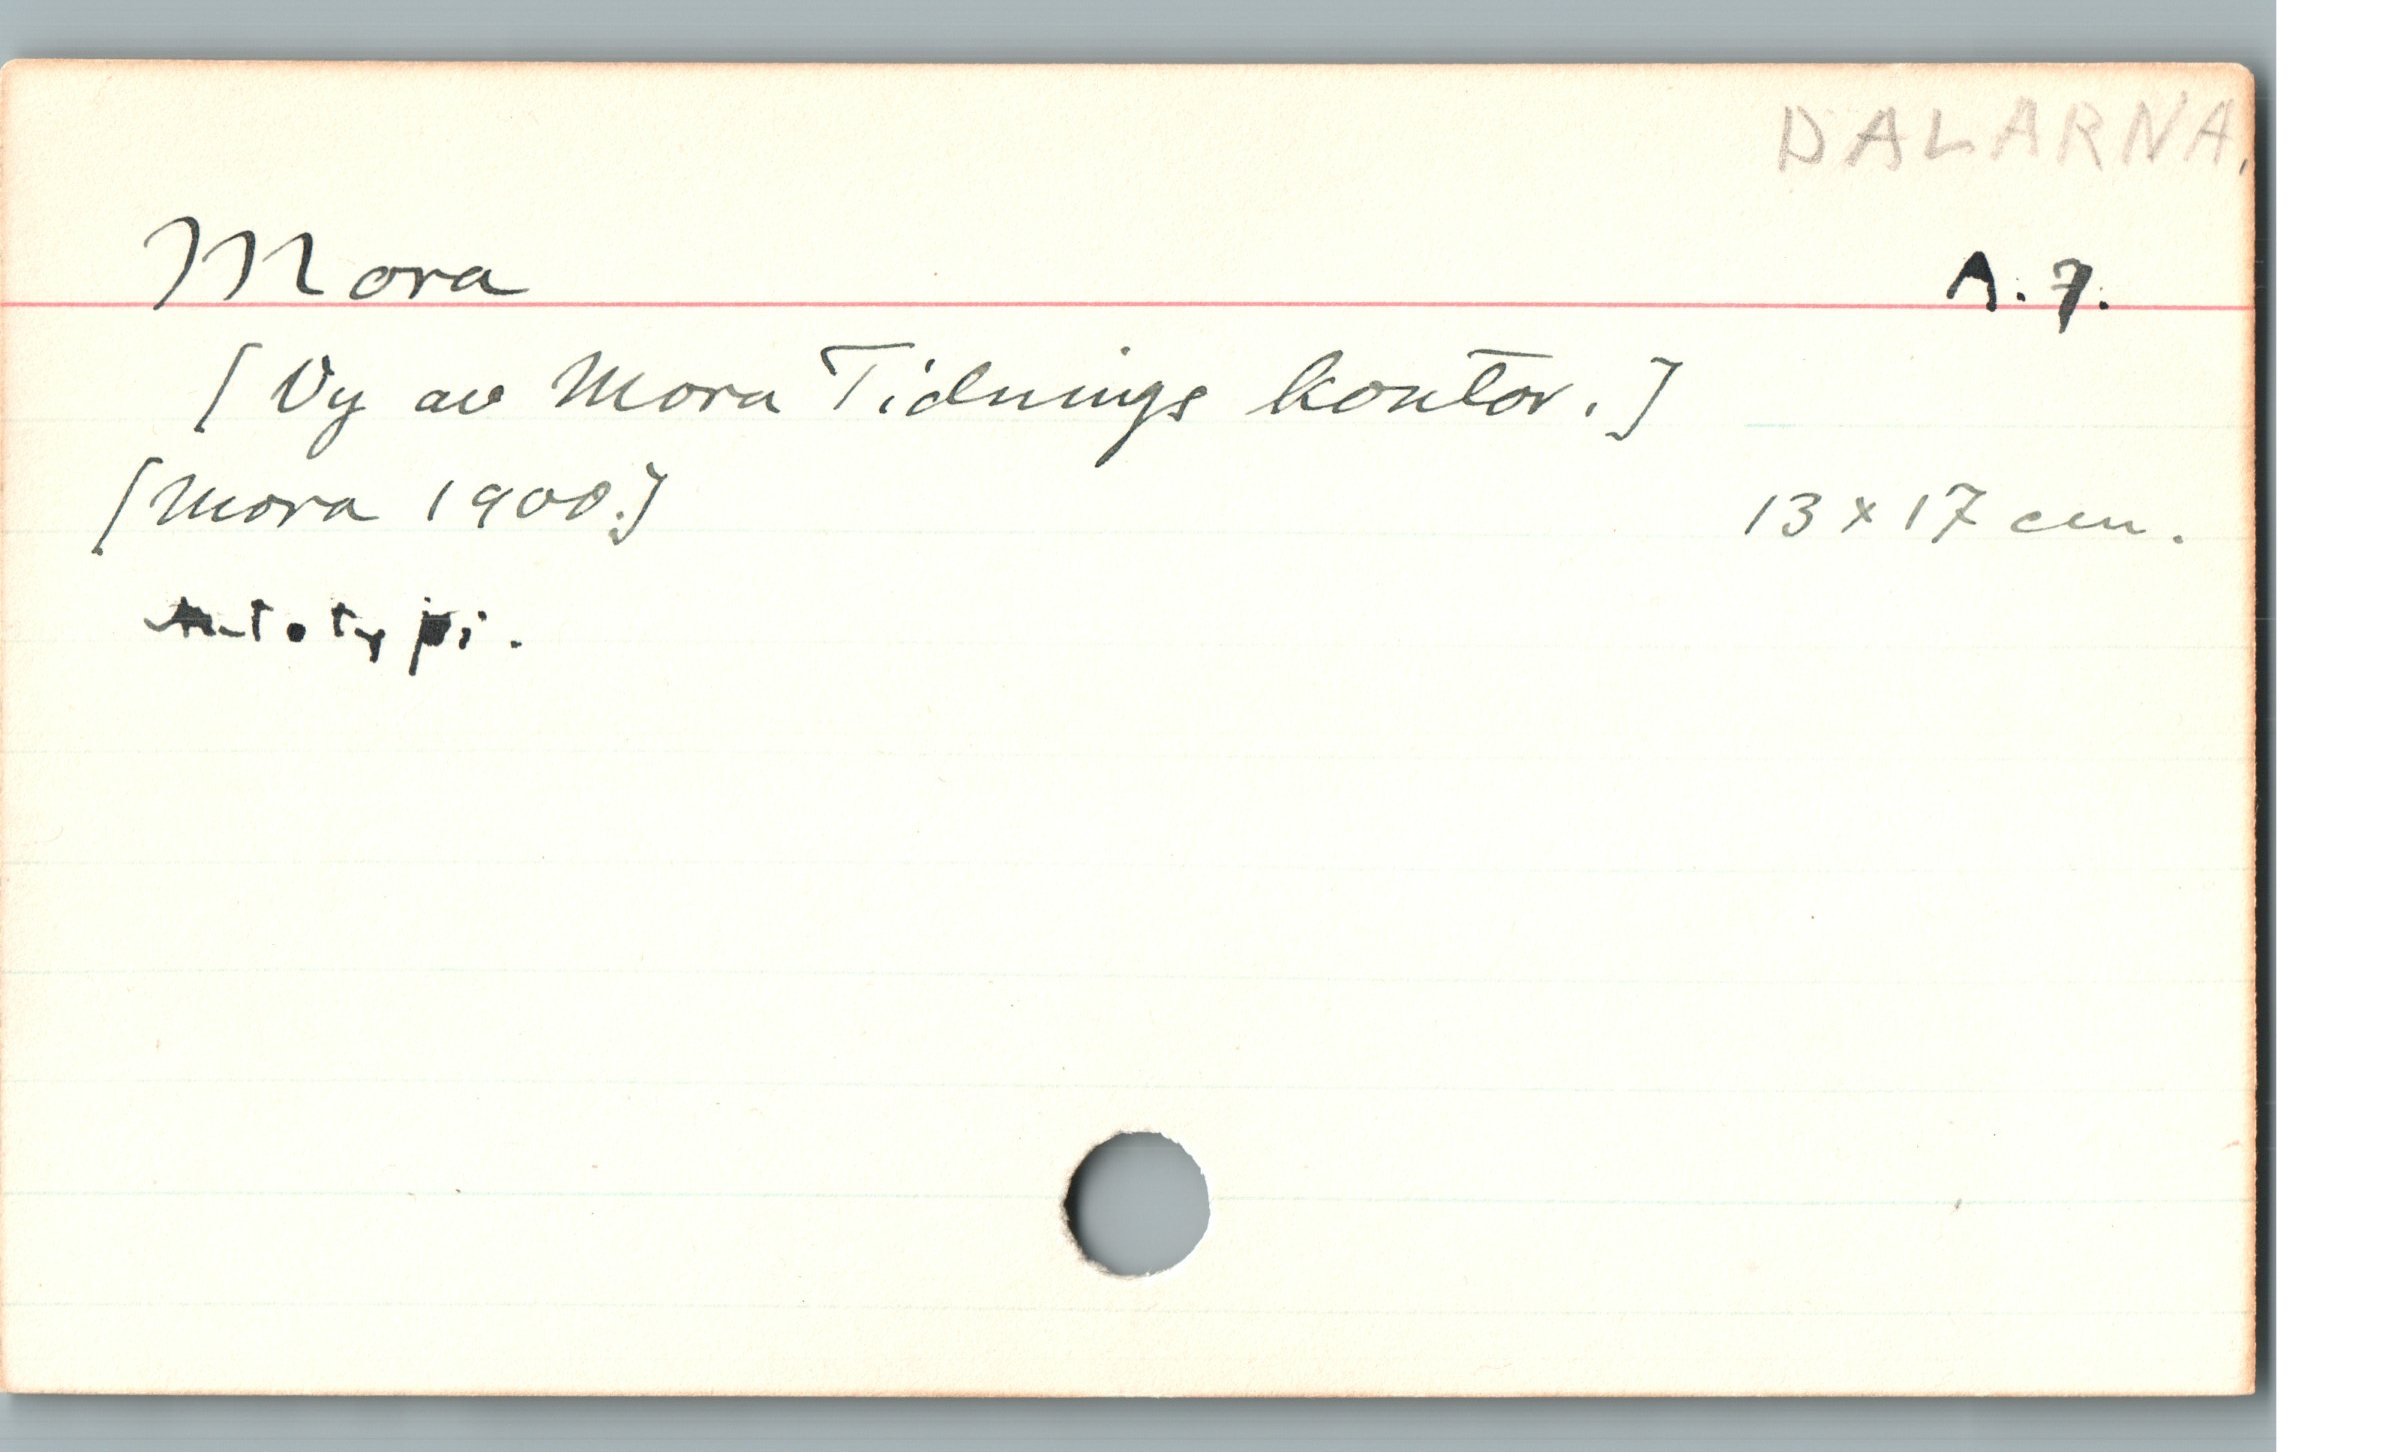 DALARNA.
Mora A. 7.
[Vy av Mora Tidnings kontor.]
[Mora 1900.] 13 x 17 cm.
Autotypi.